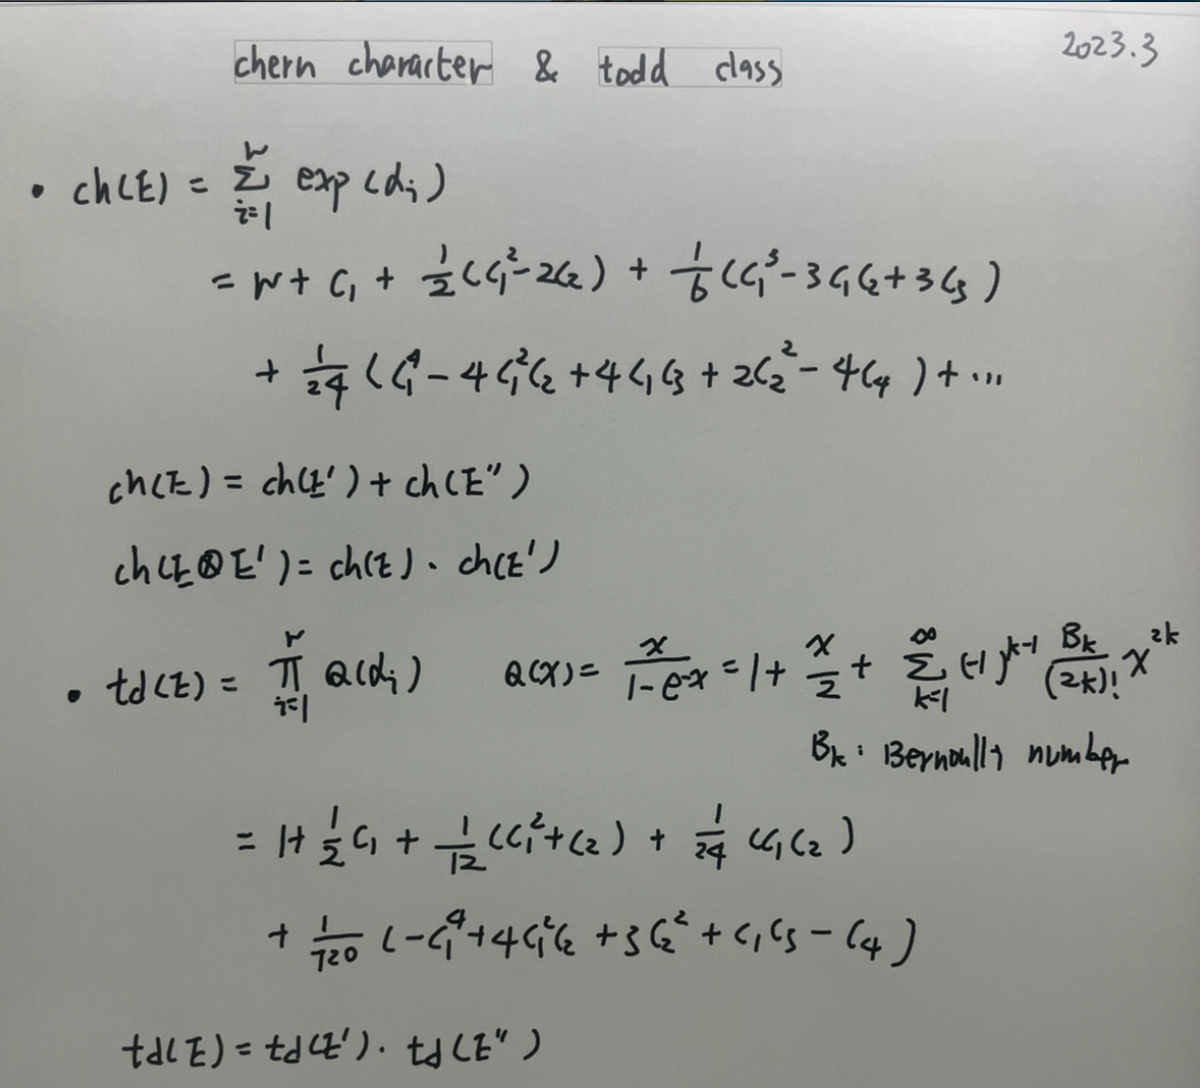 2023.3
chern character & todd class
• ch(E) = Σ_{i=1}^{r} exp(α_i)
= r + C₁ + 1/2 (C₁² - 2C₂) + 1/6 (C₁³ - 3C₁C₂ + 3C₃)
+ 1/24 (C₁⁴ - 4C₁²C₂ + 4C₁C₃ + 2C₂² - 4C₄) + ...
ch(E) = ch(E') + ch(E'')
ch(E⊗E') = ch(E) · ch(E')
• td(E) = Π_{i=1}^{r} Q(α_i) Q(x) = x/(1-e^{-x}) = 1 + x/2 + Σ_{k=1}^{∞} (-1)^{k-1} B_k/(2k)! x^{2k}
B_k : Bernoulli number
= 1 + 1/2 C₁ + 1/12 (C₁² + C₂) + 1/24 (C₁C₂)
+ 1/720 (-C₁⁴ + 4C₁²C₂ + 3C₂² + C₁C₃ - C₄)
td(E) = td(E') · td(E'')